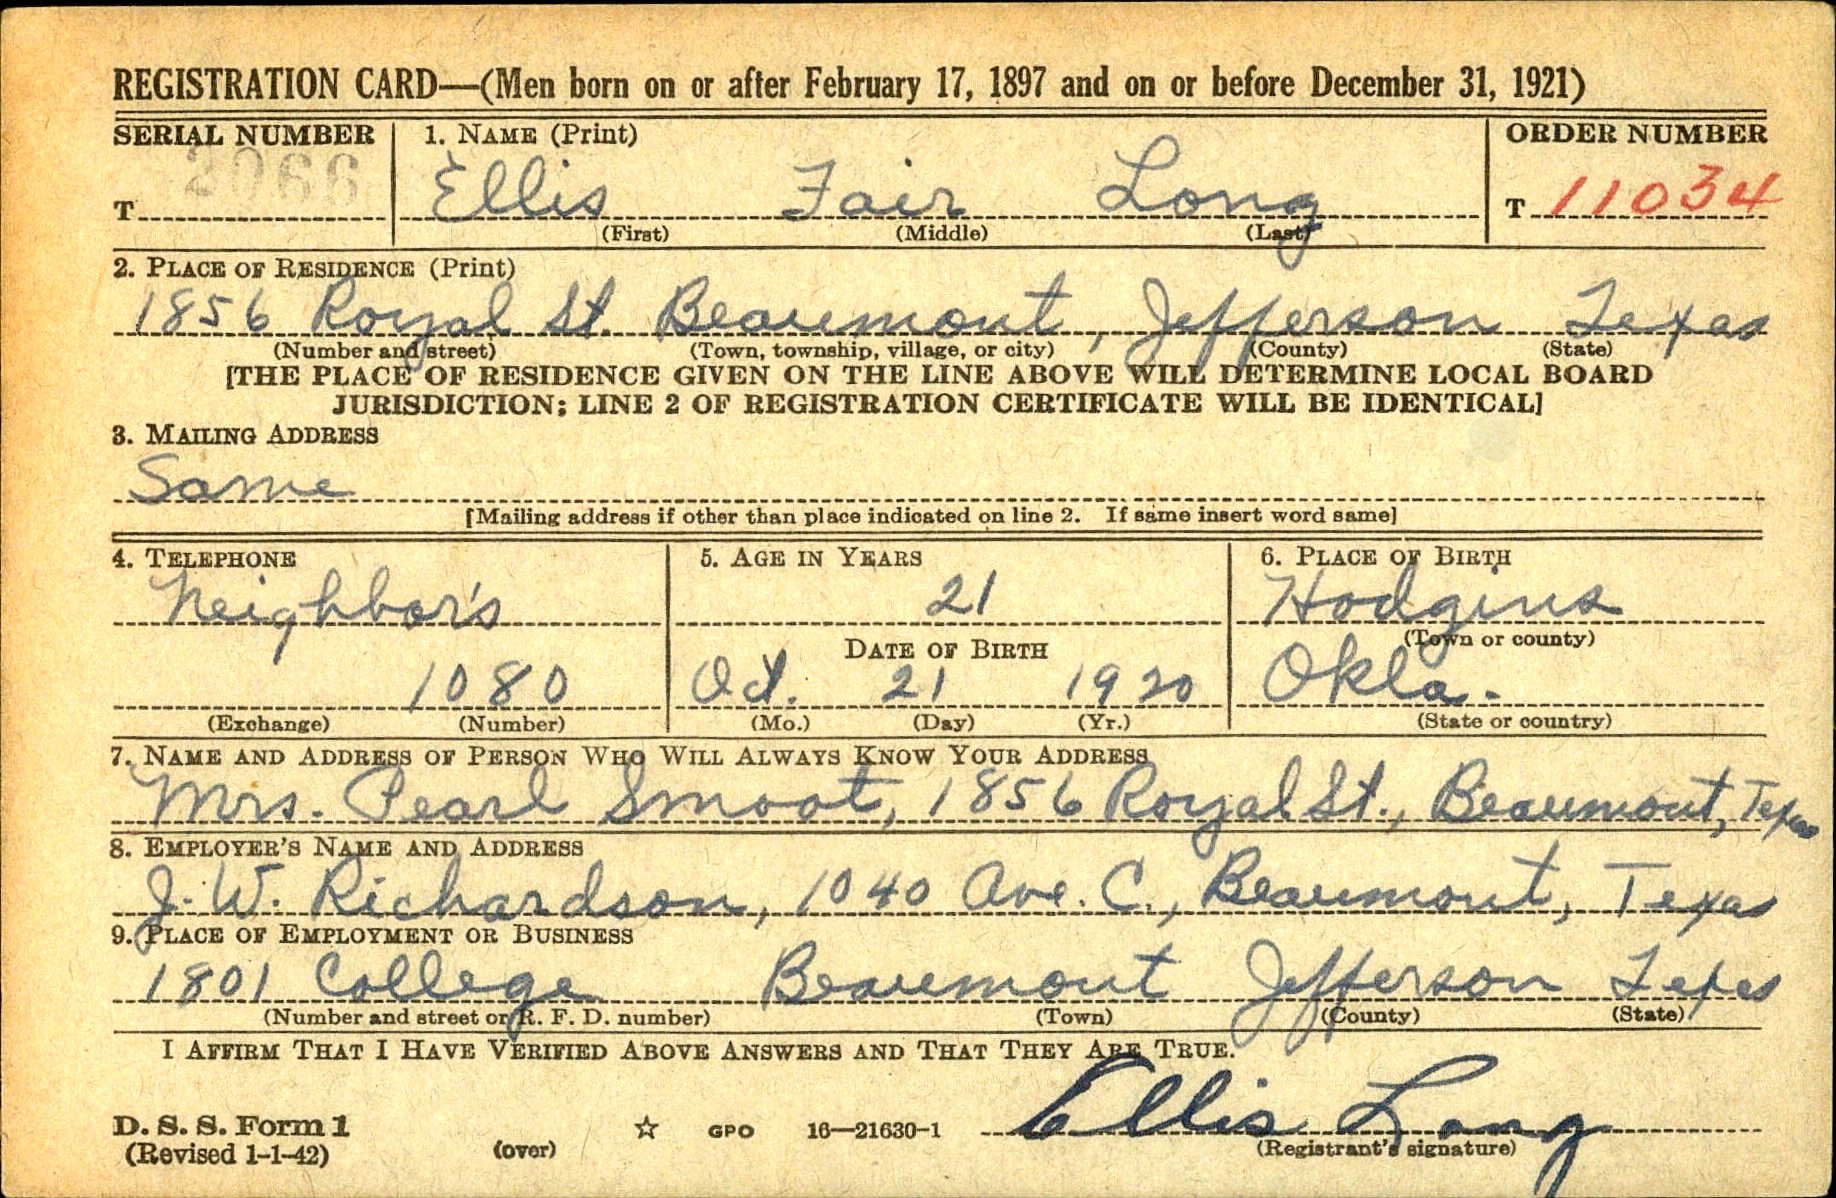 REGISTRATION CARD—(Men born on or after February 17, 1897 and on or before December 31, 1921)
SERIAL NUMBER 1. NAME (Print) ORDER NUMBER
T 2066 Ellis Fair Long T 11034
(First) (Middle) (Last)
2. PLACE OF RESIDENCE (Print)
1856 Royal St. Beaumont, Jefferson Texas
(Number and street) (Town, township, village, or city) (County) (State)
[THE PLACE OF RESIDENCE GIVEN ON THE LINE ABOVE WILL DETERMINE LOCAL BOARD
JURISDICTION; LINE 2 OF REGISTRATION CERTIFICATE WILL BE IDENTICAL]
3. MAILING ADDRESS
Same
[Mailing address if other than place indicated on line 2. If same insert word same]
4. TELEPHONE 5. AGE IN YEARS 6. PLACE OF BIRTH
Neighbor's 21 Hodgins
DATE OF BIRTH (Town or county)
1080 Oct. 21 1920 Okla.
(Exchange) (Number) (Mo.) (Day) (Yr.) (State or country)
7. NAME AND ADDRESS OF PERSON WHO WILL ALWAYS KNOW YOUR ADDRESS
Mrs. Pearl Smoot, 1856 Royal St., Beaumont, Texas
8. EMPLOYER'S NAME AND ADDRESS
J. W. Richardson, 1040 Ave. C., Beaumont, Texas
9. PLACE OF EMPLOYMENT OR BUSINESS
1801 College Beaumont Jefferson Texas
(Number and street or R. F. D. number) (Town) (County) (State)
I AFFIRM THAT I HAVE VERIFIED ABOVE ANSWERS AND THAT THEY ARE TRUE.
Ellis Long
D. S. S. Form 1 ☆ GPO 16—21630-1
(Revised 1-1-42) (over) (Registrant's signature)